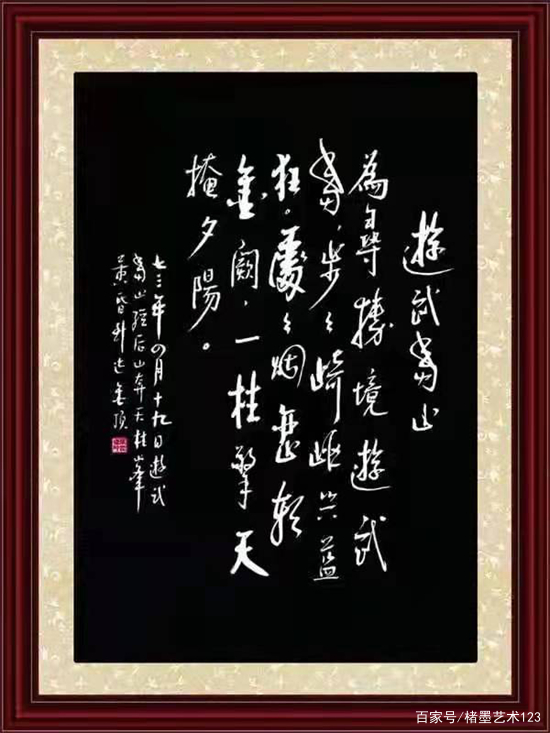 遊武當山
為尋勝境遊武
當，步々崎岖兴益
狂。處々烟
金阙，一柱擎天
掩夕陽。
七三年四月十九日遊武
當山經后山奔天柱峯
黃昏升达金顶
百家号/楮墨艺术123